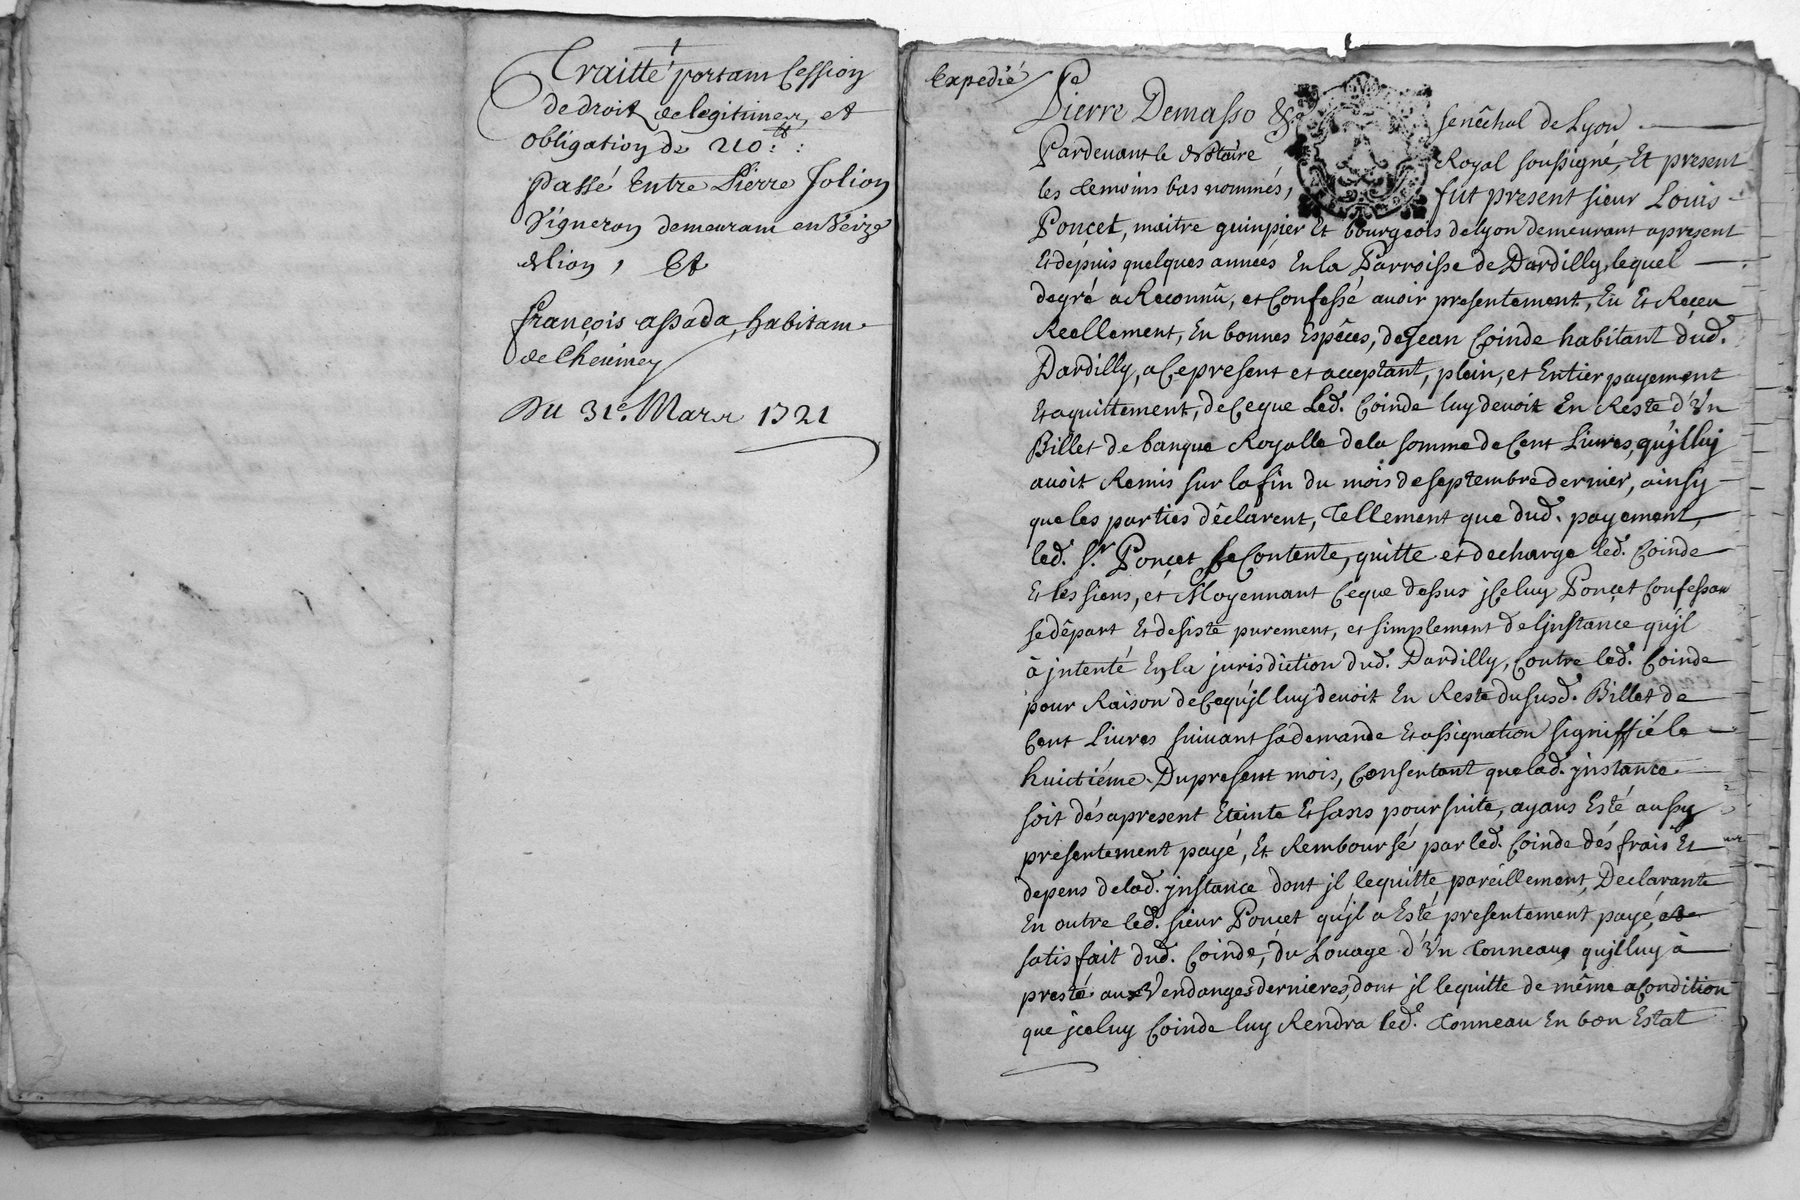 Traitté portant Cession
de droit de legitimes, et
obligation de 210.tt :
passé Entre Pierre Jolion
Vigneron demeurant en Veize
de lion, Et
françois assada, habitant
de Cheviney
Du 31e. Mars 1721
Expedié
Pierre Demasso &c.a senêchal de Lyon
Pardevant le Notaire Royal soussigné, Et present
les temoins bas nommés, fut present sieur Louis
Ponçet, maitre guinpier Et bourgeois de lyon demeurant apresent
Et depuis quelques années En la Parroisse de Dardilly, lequel
de gré a Reconnû, et Confessé avoir presentement, Eü Et Receu
Reellement, En bonnes Espêces, de Jean Coinde habitant dud.
Dardilly, a Ce present et acceptant, plein, et Entier payement
Et aquittement, de Ce que Led. Coinde luy devoit En Reste d'Vn
Billet de banque Royalle de la somme de Cent Livres, qu'jl luj
avoit Remis sur la fin du mois de septembre dernier, ainsy
que les parties dêclarent, tellement que dud. payement,
led. Sr. Ponçet se Contente, quitte et decharge led. Coinde
Et les siens, et Moyennant Ce que dessus jCeluy Ponçet Confessan
se dêpart Et desiste purement, et simplement de l'jnstance qu'jl
à jntenté En la jurisdiction dud. Dardilly, Contre led. Coinde
pour Raison de Ce qu'jl luy devoit En Reste du susd. Billet de
Cent Livres suivant sa demande Et assignation signiffié le
huictiéme Du present mois, Consentant que lad. jnstance
soit dés apresent Eteinte Et sans poursuite, ayans Esté aussy
presentement payé, Et Remboursé par led. Coinde dés frais Et
depens de lad. jnstance dont jl le quitte pareillement, Declarante
En outre led. sieur Ponçet qu'jl a Esté presentement payé, et
satisfait dud. Coinde, du Louage d'Vn tonneau, qu'jl luy à
presté aux Vendanges dernieres, dont jl le quitte de même a Condition
que jceluy Coinde luy Rendra led. tonneau En bon Estat